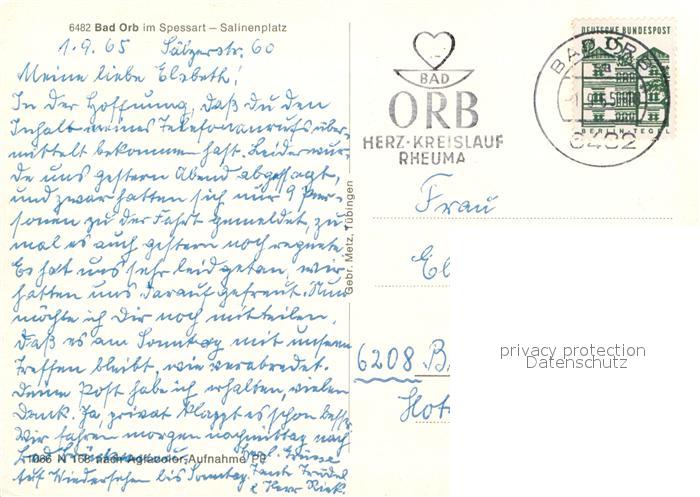 6482 Bad Orb im Spessart – Salinenplatz
1.9.65 Sälzerstr. 60
Meine liebe Elsbeth!
In der Hoffnung, daß du den
Inhalt meines Telefonanrufs über-
mittelt bekommen hast. Leider wur-
de uns gestern Abend abgesagt,
und zwar hatten sich nur 9 Per-
sonen zu der Fahrt gemeldet, zu
mal es auch gestern noch regnete.
Es hat uns sehr leid getan, wir
hatten uns darauf gefreut. Nun
möchte ich Dir noch mitteilen,
daß es am Sonntag mit unserem
Treffen bleibt, wie verabredet.
Deine Post habe ich erhalten, vielen
Dank. Ja, privat klappt es schon besser
Wir fahren morgen nachmittag nach
Herzl. Grüsse
1066 N 168 nach Agfacolor-Aufnahme PP
Auf Wiedersehen bis Sonntag. Tante Trudel
& Herr Rick.
Gebr. Metz, Tübingen
BAD
ORB
HERZ-KREISLAUF
RHEUMA
DEUTSCHE BUNDESPOST
BERLIN-TEGEL
BAD ORB
6482
Frau
El
6208 B
Hot
privacy protection
Datenschutz